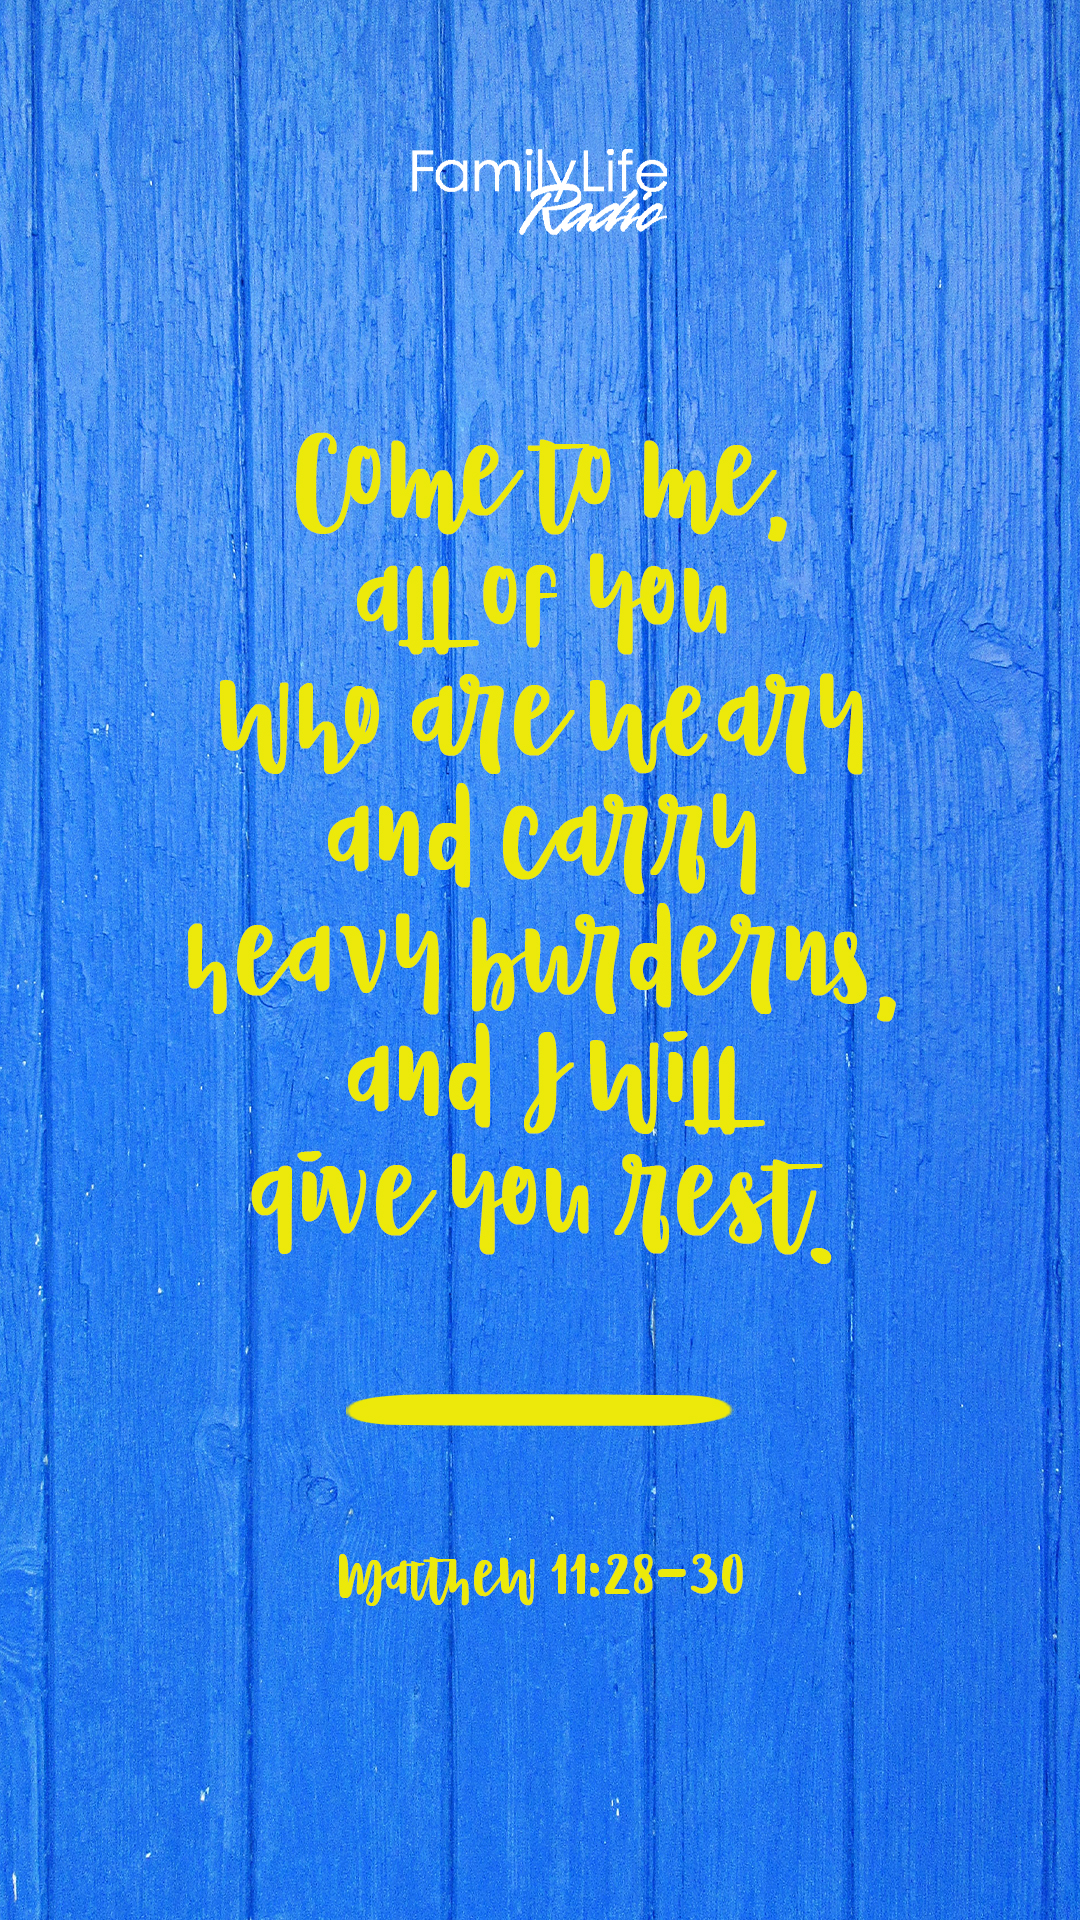 FamilyLife
Radio
Come to me,
all of you
who are weary
and carry
heavy burderns,
and I will
give you rest.
Matthew 11:28-30